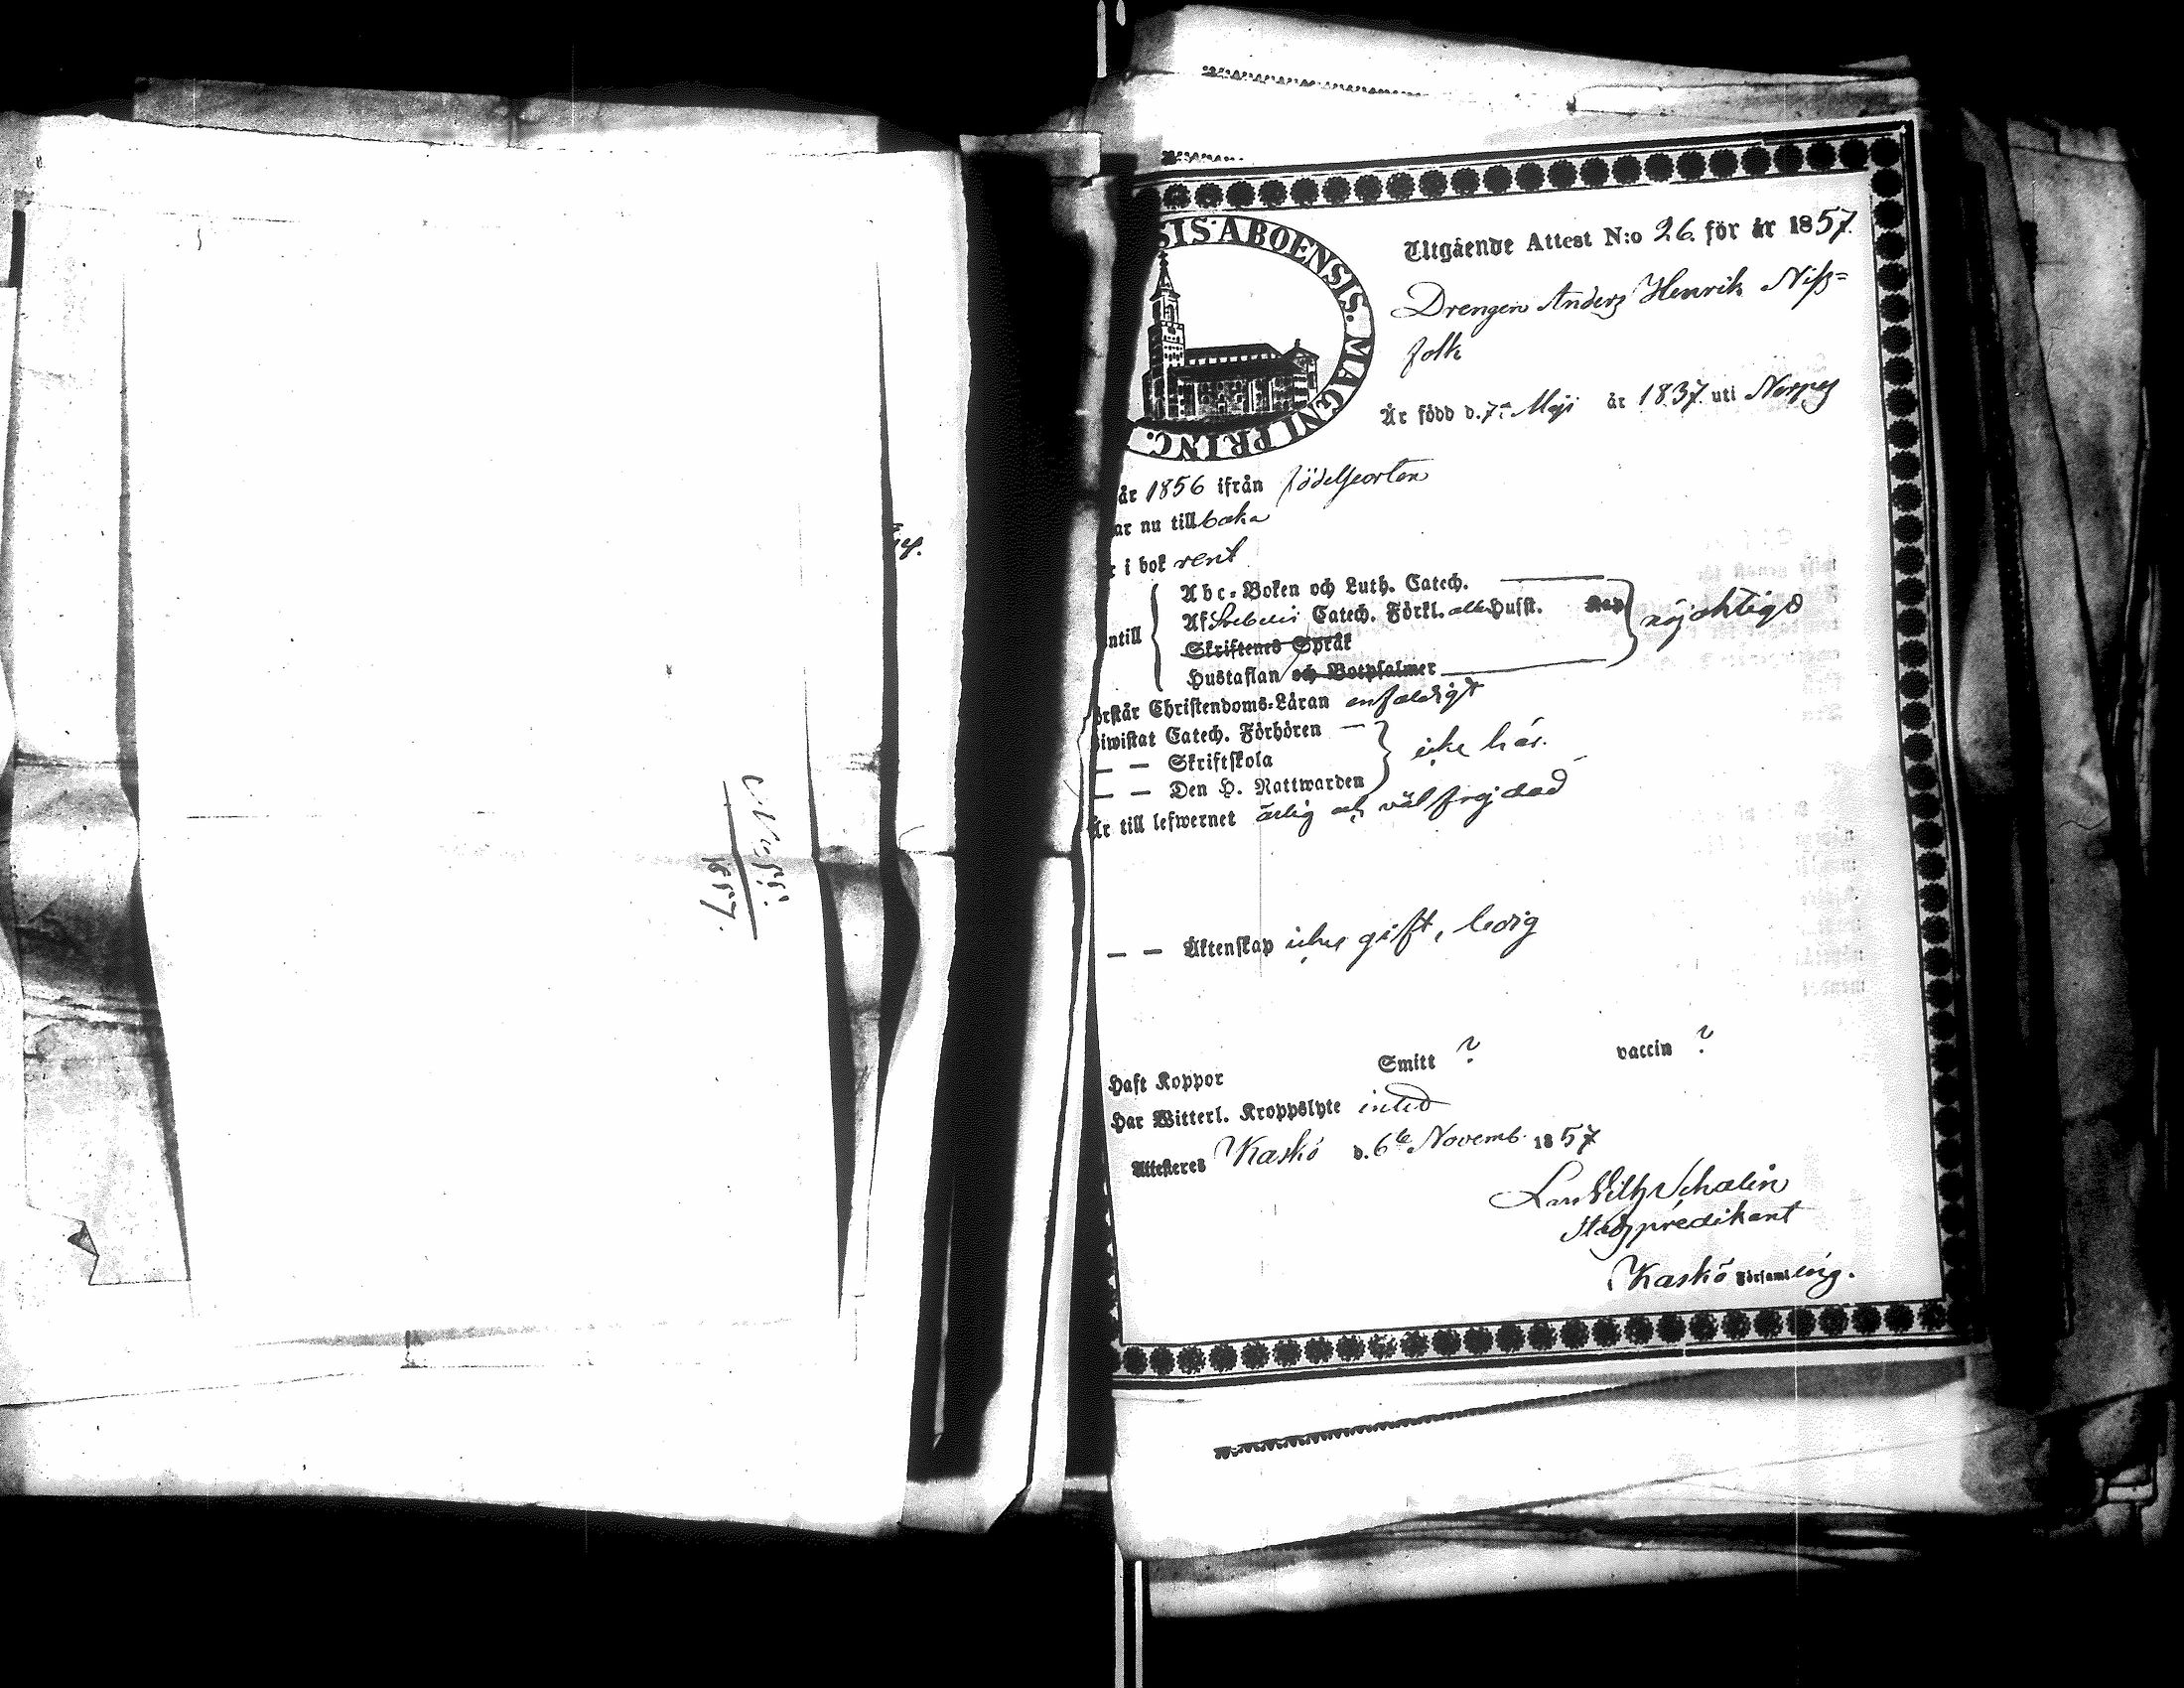 14.
1857.
SIS ABOENSIS. MAGNI PRINC.
Utgående Attest N:o 26. för år 1857.
Drengen Anders Henrik Niss=
folk
Är född d. 7de Maji år 1837 uti Nerpes
år 1856 ifrån födelseorten
ar nu tillbaka
i bok rent
ntill
Abc-Boken och Luth. Catech.
Af Svebelii Catech. Förkl. eller Husst. Kap
Skriftenes Språk
Hustaflan och Botpsalmer
nöjaktigt
örstår Christendoms-Läran enfaldigt
iwistat Catech. Förhören
— — Skriftskola
— — Den H. Nattwarden
icke här.
Är till lefwernet ärlig och väl frejdad
— — Äktenskap icke gift, ledig
Haft Koppor Smitt ? vaccin ?
Har Witterl. Kroppslyte intet
Attesteras Kaskö d. 6te Novemb. 1857
Schalin
Stadspredikant
Kaskö Församling.